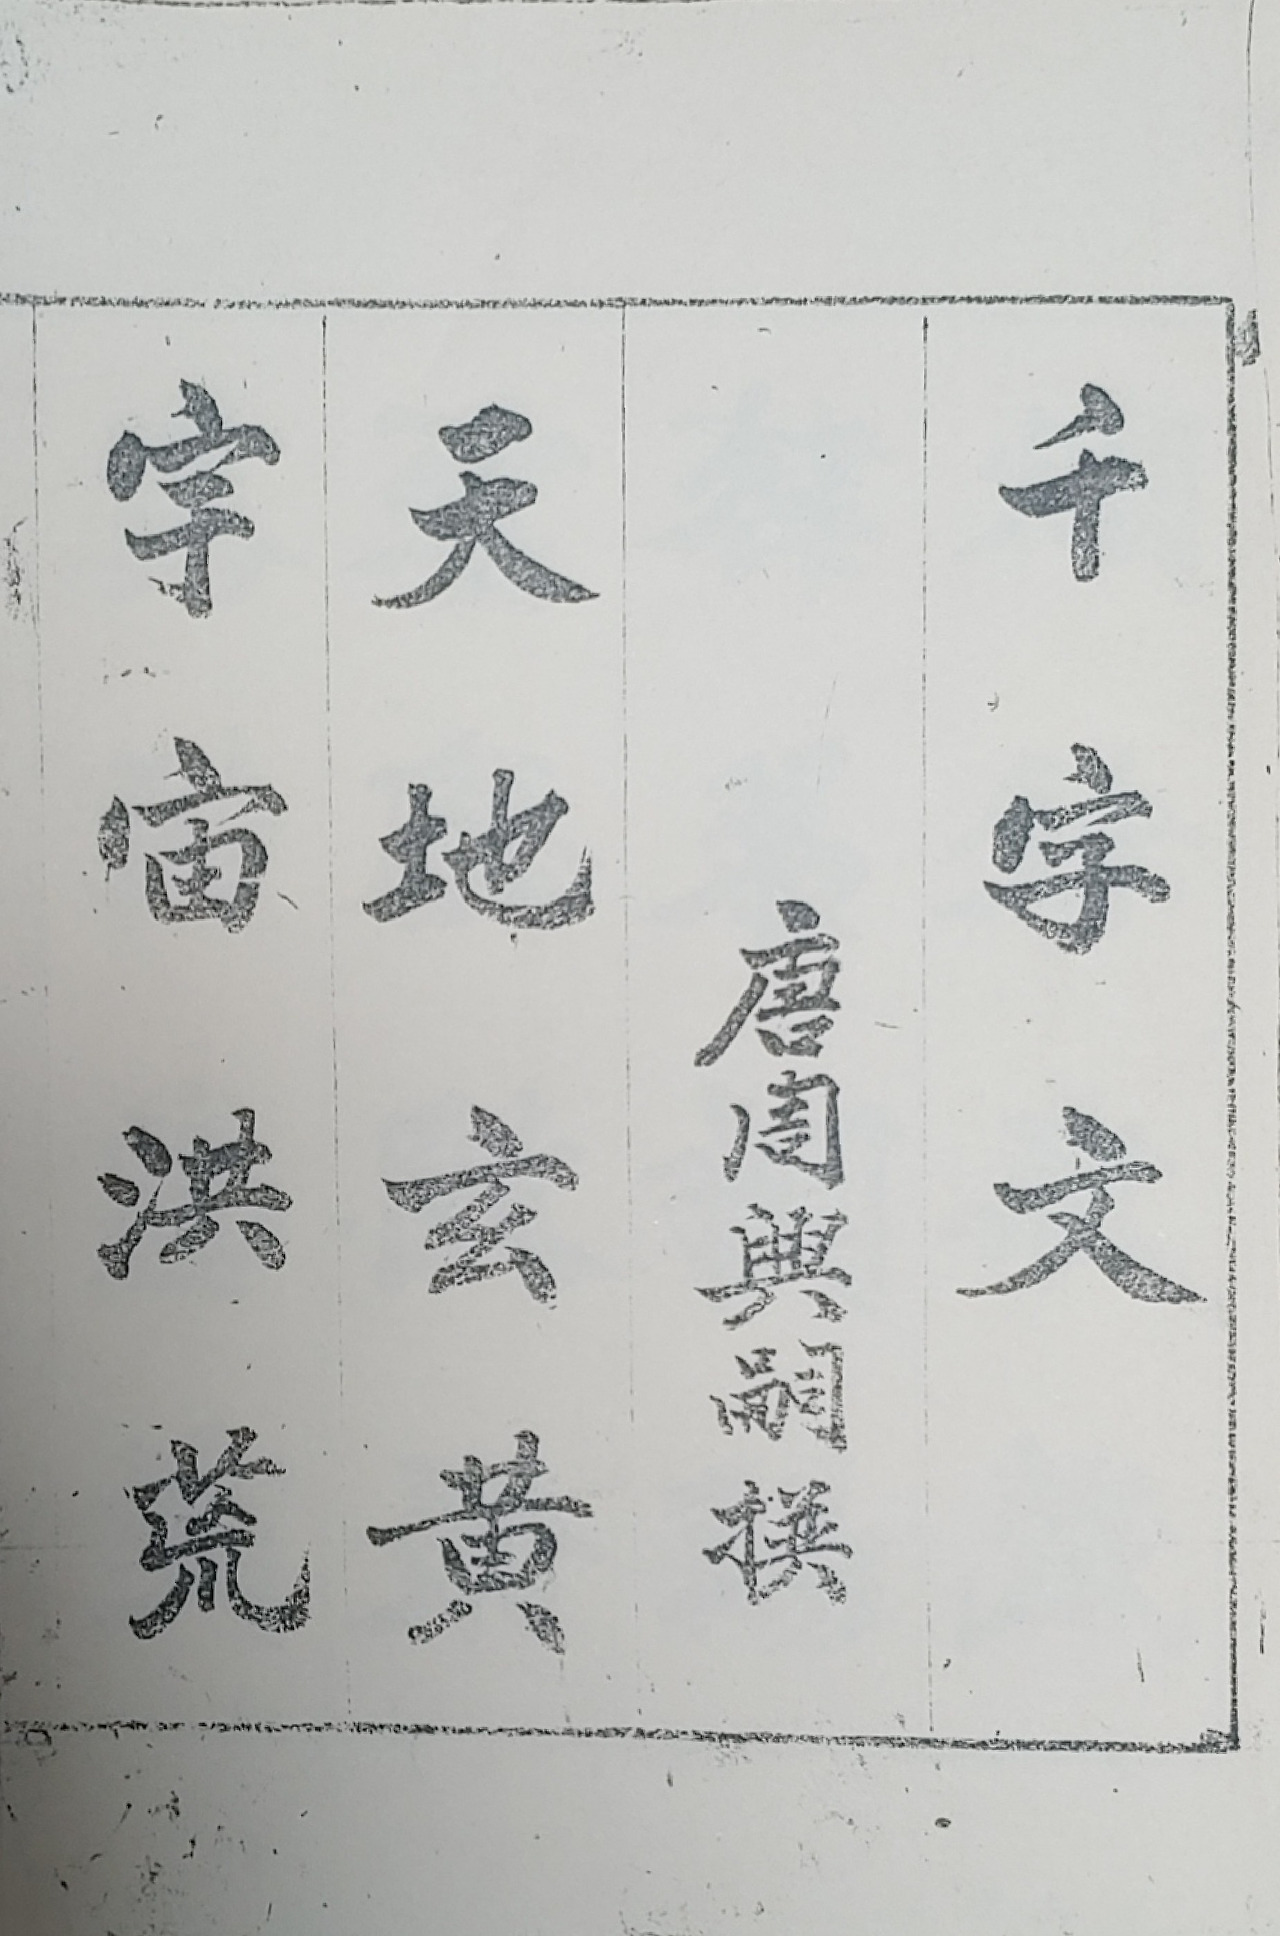 千字文
唐周興嗣撰
天地玄黃
宇宙洪荒